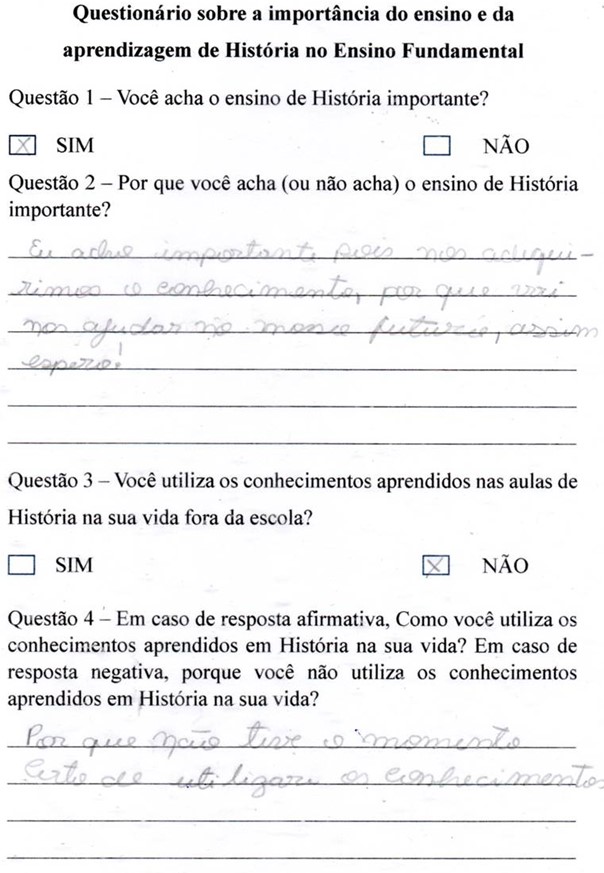 Questionário sobre a importância do ensino e da
aprendizagem de História no Ensino Fundamental
Questão 1 – Você acha o ensino de História importante?
X SIM NÃO
Questão 2 – Por que você acha (ou não acha) o ensino de História
importante?
Eu acho importante pois nos adiqui-
rimos o conhecimento, por que vai
nos ajudar no nosso futuro, assim
espero!
Questão 3 – Você utiliza os conhecimentos aprendidos nas aulas de
História na sua vida fora da escola?
SIM X NÃO
Questão 4 – Em caso de resposta afirmativa, Como você utiliza os
conhecimentos aprendidos em História na sua vida? Em caso de
resposta negativa, porque você não utiliza os conhecimentos
aprendidos em História na sua vida?
Por que não tive o momento
Certo de utiligar os conhecimentos